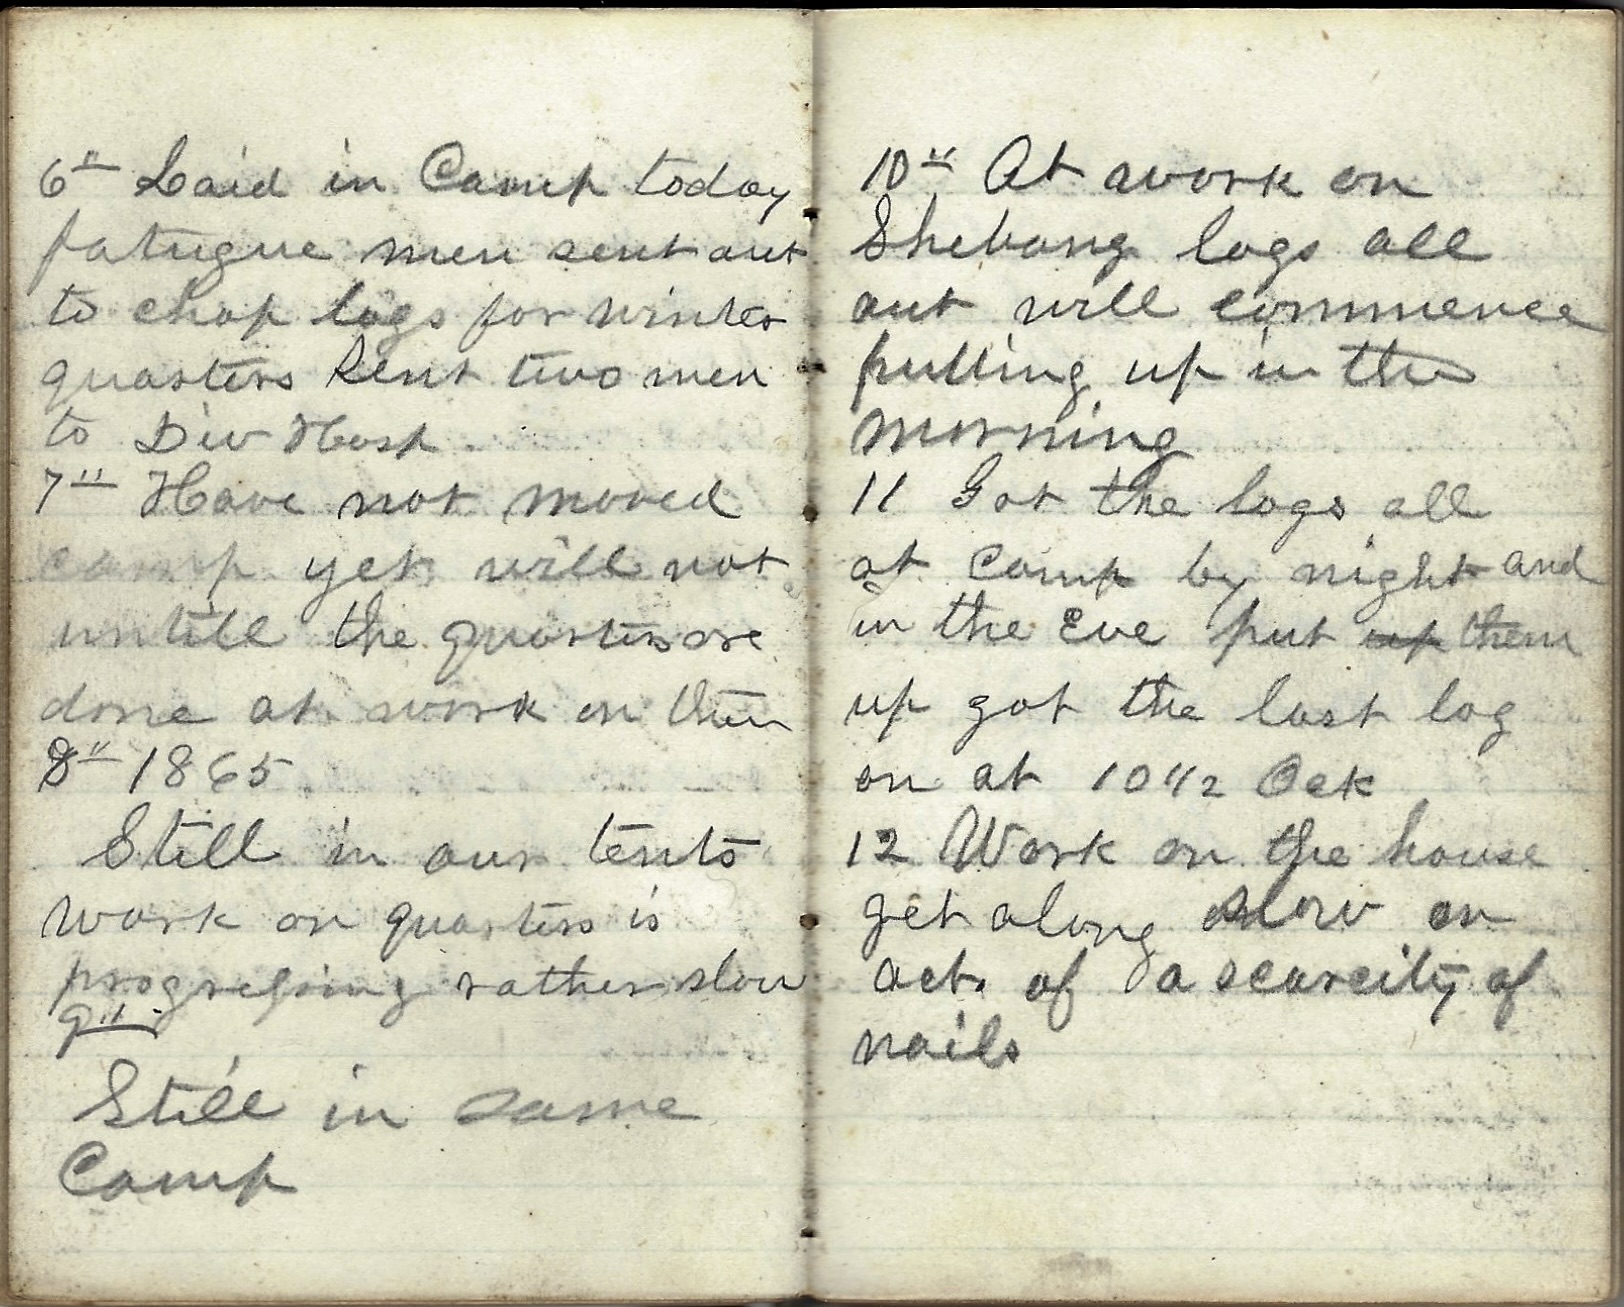 6" Laid in Camp today
fatugue men sent out
to chop logs for winter
quarters Sent two men
to Div Hosp
7" Have not moved
camp yet will not
untill the quarters are
done at work on them
8" 1865
Still in our tents
work on quarters is
progressing rather slow
9"
Still in same
Camp
10" At work on
Shebang logs all
out will commence
putting up in the
morning
11 Got the logs all
at Camp by night and
in the Eve put up them
up got the last log
on at 10 1/2 Ock
12 Work on the house
get along slow on
act. of a scarcity of
nails